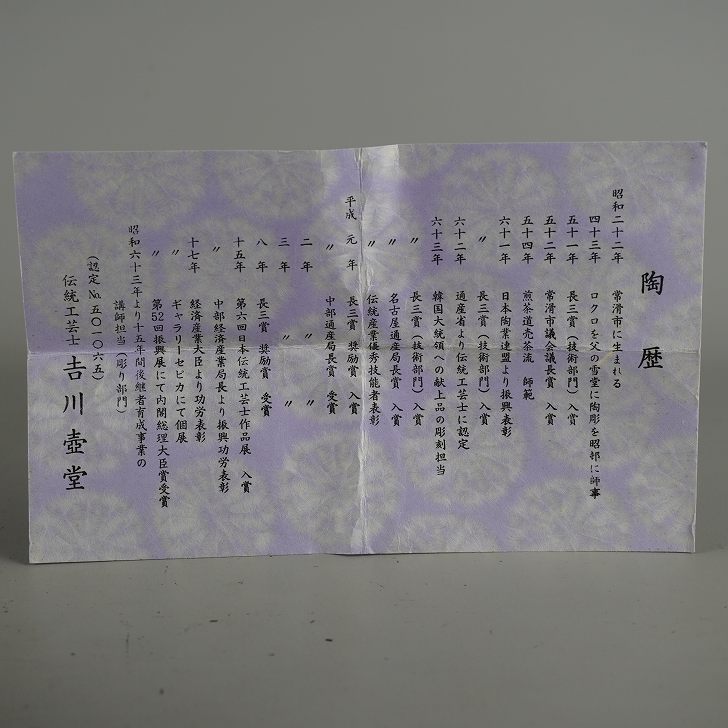 陶歴
昭和二十二年 常滑市に生まれる
四十三年 ロクロを父の雪堂に陶彫を昭邨に師事
五十一年 長三賞(技術部門)入賞
五十二年 常滑市議会議長賞 入賞
五十四年 煎茶道売茶流 師範
六十一年 日本陶業連盟より振興表彰
〃 長三賞(技術部門)入賞
六十二年 通産省より伝統工芸士に認定
六十三年 韓国大統領への献上品の彫刻担当
〃 長三賞(技術部門)入賞
〃 名古屋通産局長賞 入賞
〃 伝統産業優秀技能者表彰
平成元年 長三賞 奨励賞 入賞
〃 中部通産局長賞 受賞
二年 〃 〃
三年 〃 〃
八年 長三賞 奨励賞 受賞
十五年 第六回日本伝統工芸士作品展 入賞
〃 中部経済産業局長より振興功労表彰
十七年 経済産業大臣より功労表彰
〃 ギャラリーセピカにて個展
〃 第52回振興展にて内閣総理大臣賞受賞
昭和六十三年より十五年間後継者育成事業の
講師担当(彫り部門)
(認定No.五〇一〇六五)
伝統工芸士 吉川壺堂